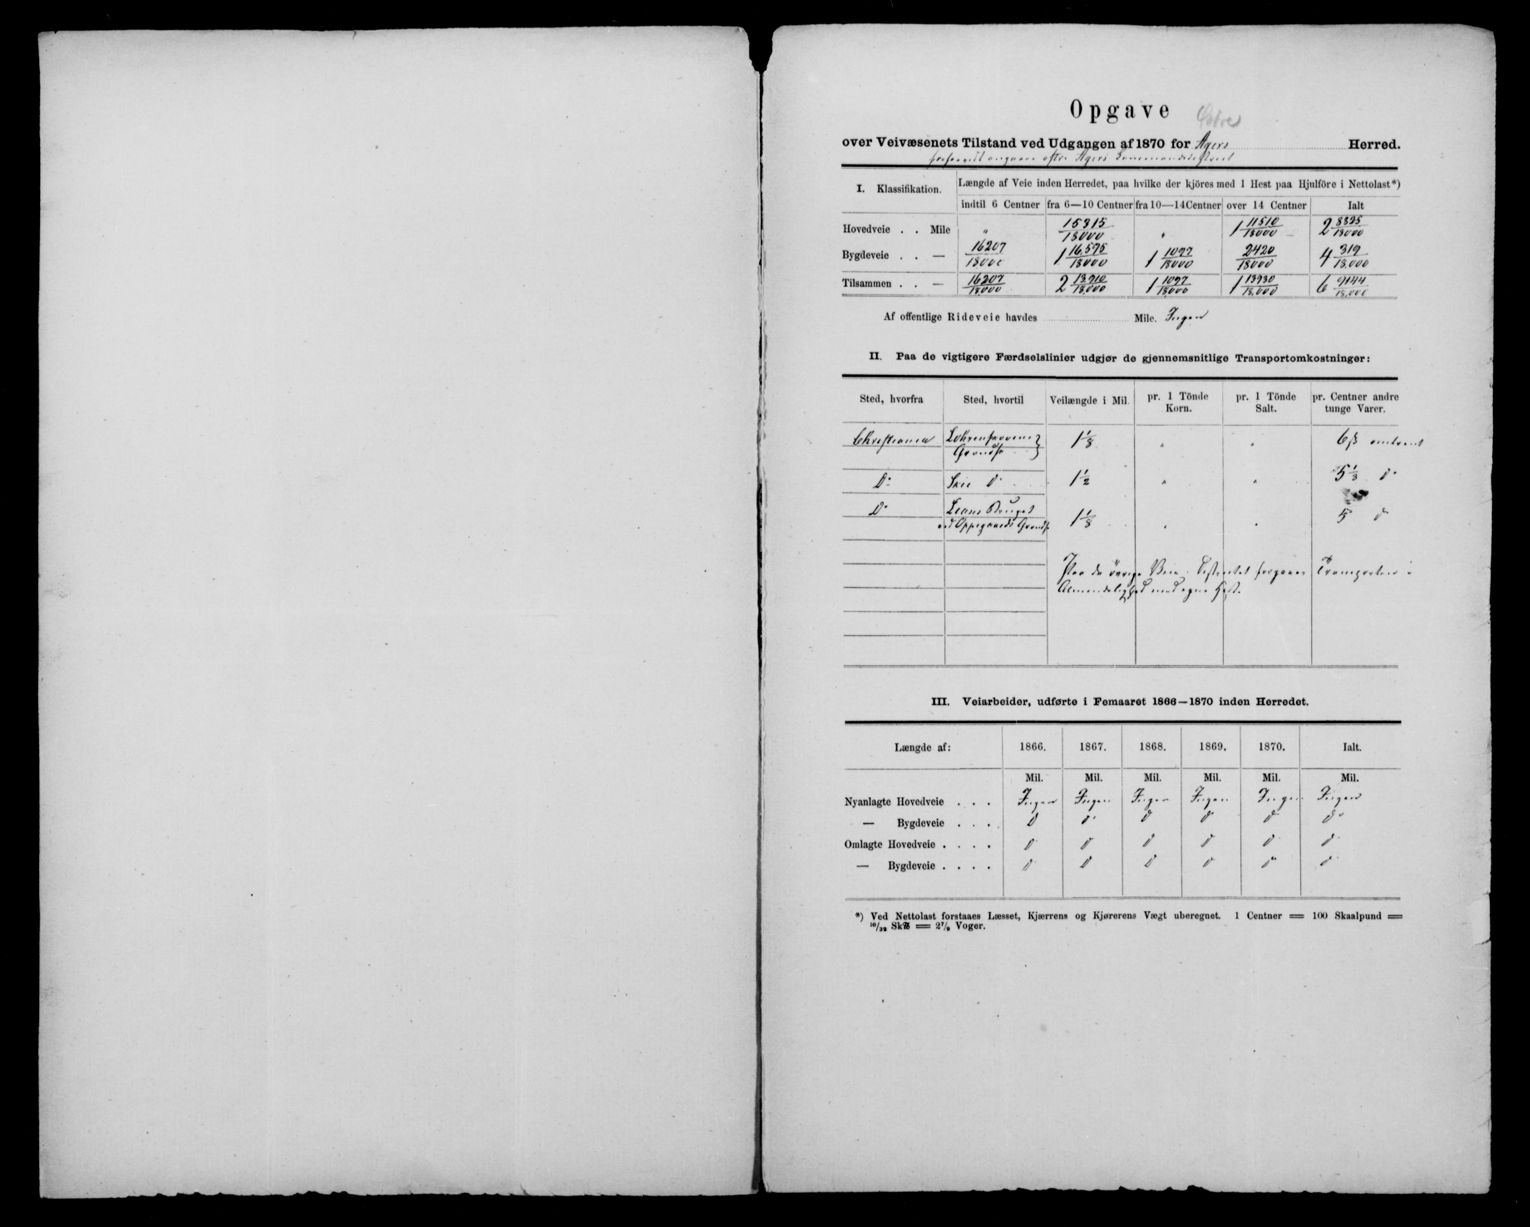 Opgave
Østre
over Veivæsenets Tilstand ved Udgangen af 1870 for Agers Herred.
forsaavidt angaaer østre Agers Lensmandsdistrict
I. Klassifikation. Længde af Veie inden Herredet, paa hvilke der kjöres med 1 Hest paa Hjulföre i Nettolast*)
indtil 6 Centner fra 6—10 Centner fra 10—14 Centner over 14 Centner Ialt
Hovedveie . . Mile „ 15315/18000 „ 1 11510/18000 2 8325/18000
Bygdeveie . . — 16207/18000 1 16,595/18000 1 1097/18000 2420/18000 4 319/18,000
Tilsammen . . — 16207/18,000 2 13910/18,000 1 1097/18,000 1 13930/18,000 6 9144/18,000
Af offentlige Rideveie havdes Mile. Ingen
II. Paa de vigtigere Færdselslinier udgjør de gjennemsnitlige Transportomkostninger:
Sted, hvorfra Sted, hvortil Veilængde i Mil. pr. 1 Tönde Korn. pr. 1 Tönde Salt. pr. Centner andre tunge Varer.
Christiania 1 1/8 „ „ 6 ß omtrent
Grændse
Do Skie Do 1 1/2 „ „ 5 1/3 Do
Do Lians Bruget
ved Oppegaards Grændse 1 1/8 „ „ 5 Do
Paa de övrige Veie i Districtet foregaaer Transporten i
Almindelighed med egne Heste.
III. Veiarbeider, udførte i Femaaret 1866—1870 inden Herredet.
Længde af: 1866. 1867. 1868. 1869. 1870. Ialt.
Mil. Mil. Mil. Mil. Mil. Mil.
Nyanlagte Hovedveie . . . Ingen Ingen Ingen Ingen Ingen Ingen
— Bygdeveie . . . Do Do Do Do Do Do
Omlagte Hovedveie . . . . Do Do Do Do Do Do
— Bygdeveie . . . . Do Do Do Do Do Do
*) Ved Nettolast forstaaes Læsset, Kjærrens og Kjørerens Vægt uberegnet. 1 Centner = 100 Skaalpund =
10/32 Sk℔ = 2 7/9 Voger.